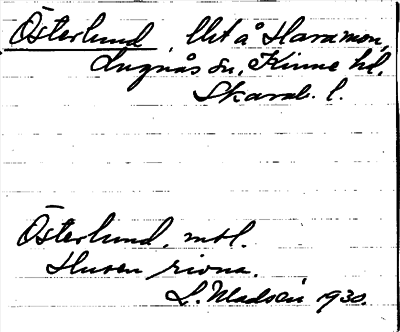 Österlund, lht å Haramon,
Lugnås sn, Kinne hd.
Skarab. l.
Österlund, mtl.
Husen rivna.
L. Madsén 1930.